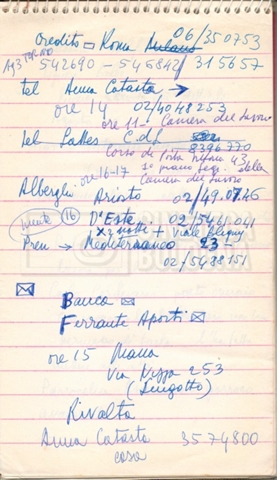 Credito □ Roma Milano 06/350753
A 93 TORINO
542690 - 545842/ 315657
tel Anna Catasta →
ore 14 02/4048253
ore 11 Camera del Lavoro
tel CdL
8396770
Corso di Porta 43
ore 16-17 1° piano della
Camera del Lavoro
Alberghi:
Ariosto 02/49.07.46
16 D'Este 02/5461041
x 3 notti + Viale Bligny
Pren → Mediterraneo 23
02/5488151
Banca ✉
Ferrante Aporti ✉
ore 15
Via Nizza 253
(Lingotto)
Rivalta
Anna Catasta 3574800
casa